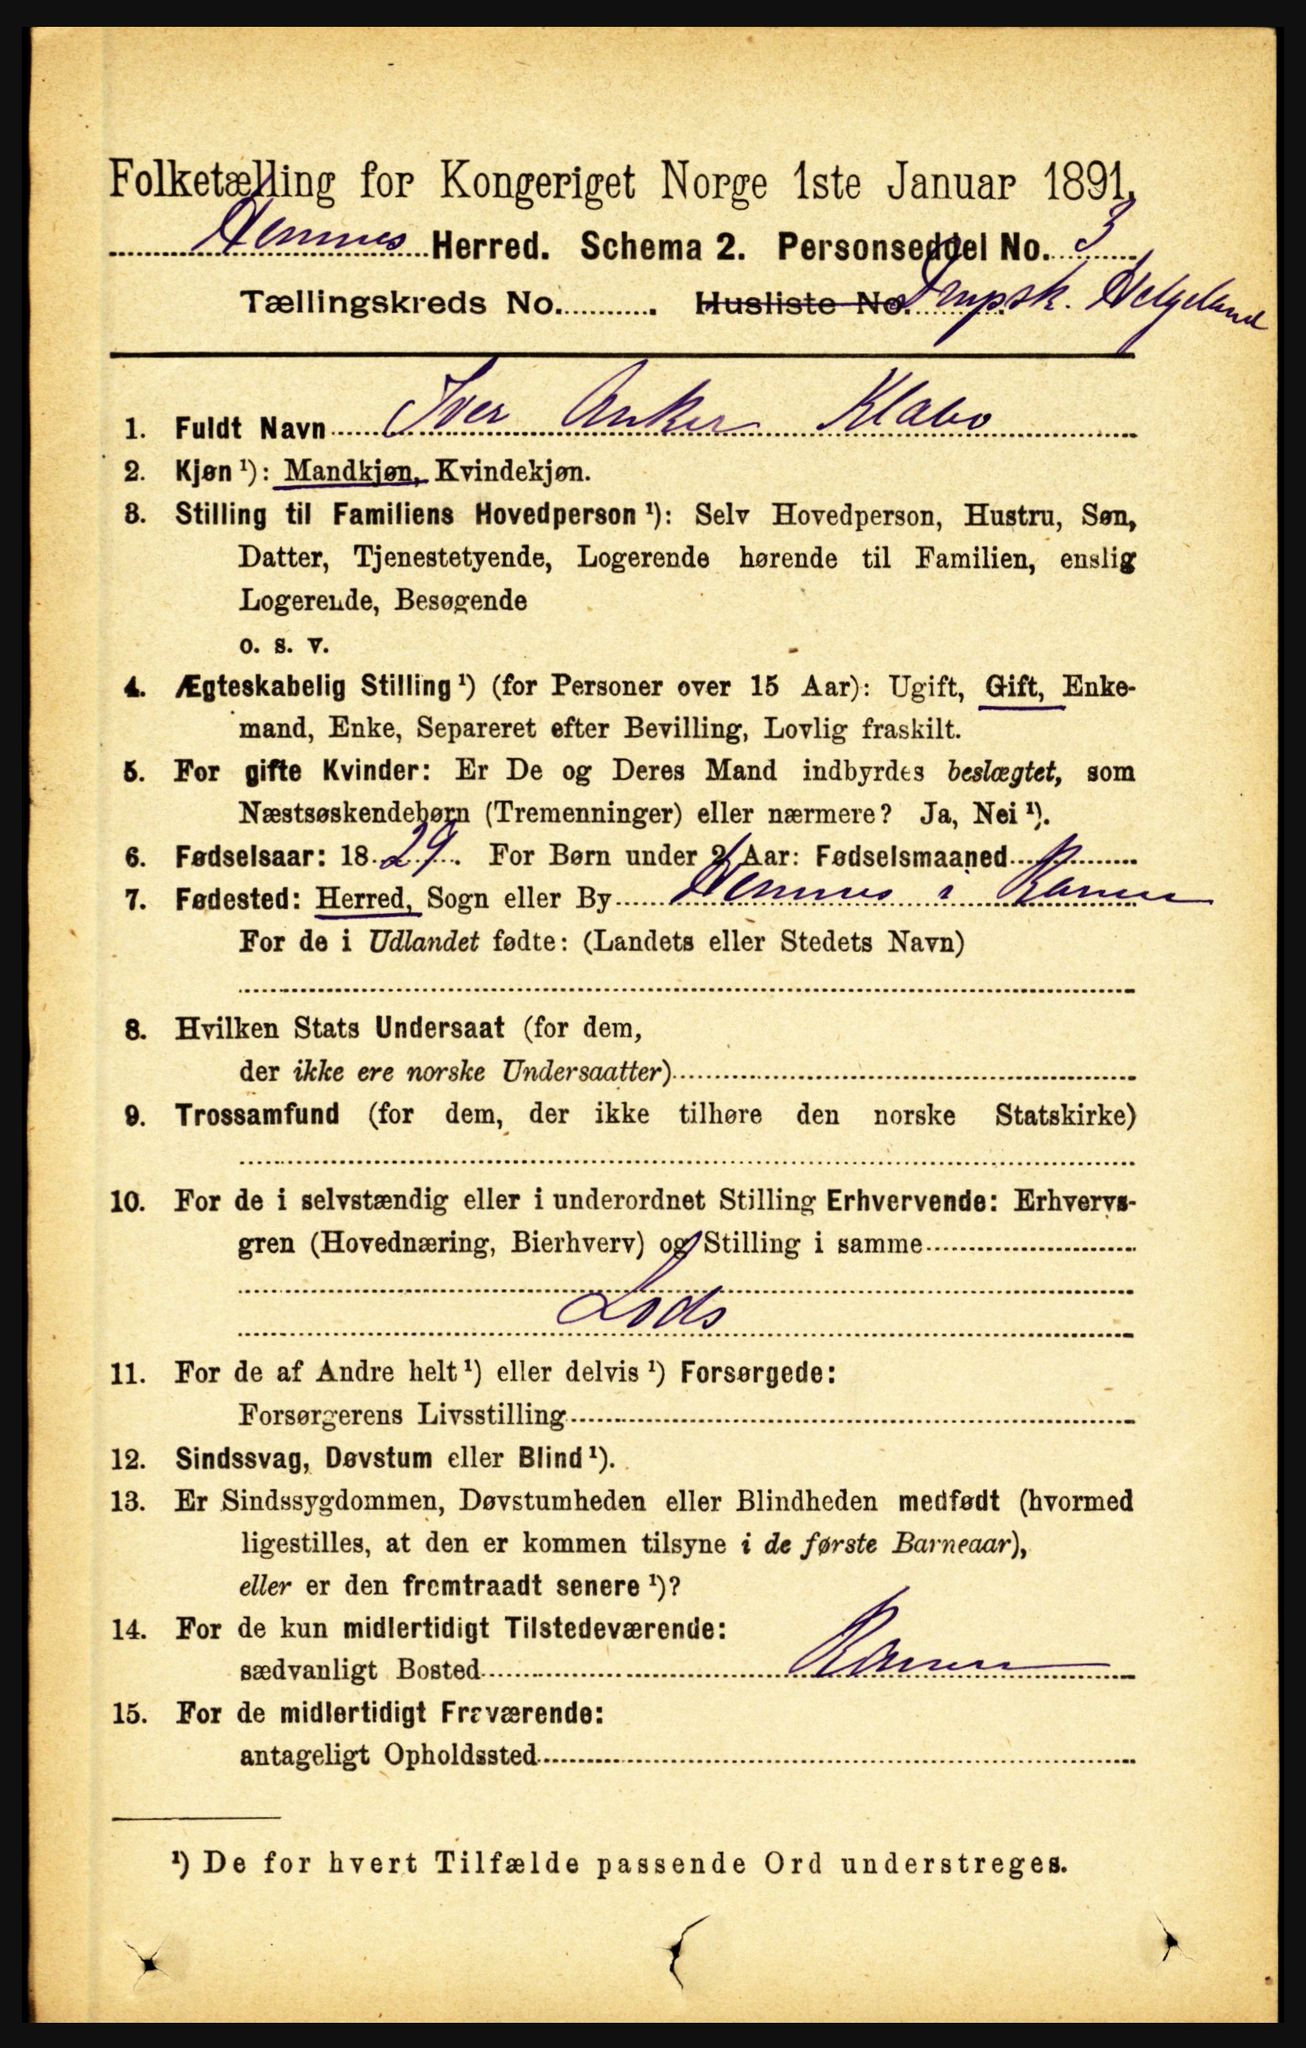 Folketælling for Kongeriget Norge 1ste Januar 1891.
Hemnes Herred. Schema 2. Personseddel No. 3
Tællingskreds No. Husliste No. Dmpsk. Helgeland
1. Fuldt Navn Iver Anker Klabo
2. Kjøn ¹): Mandkjøn, Kvindekjøn.
3. Stilling til Familiens Hovedperson ¹): Selv Hovedperson, Hustru, Søn,
Datter, Tjenestetyende, Logerende hørende til Familien, enslig
Logerende, Besøgende
o. s. v.
4. Ægteskabelig Stilling ¹) (for Personer over 15 Aar): Ugift, Gift, Enke-
mand, Enke, Separeret efter Bevilling, Lovlig fraskilt.
5. For gifte Kvinder: Er De og Deres Mand indbyrdes beslægtet, som
Næstsøskendebørn (Tremenninger) eller nærmere? Ja, Nei ¹).
6. Fødselsaar: 1829. For Børn under 2 Aar: Fødselsmaaned
7. Fødested: Herred, Sogn eller By Hemnes i Ranen
For de i Udlandet fødte: (Landets eller Stedets Navn)
8. Hvilken Stats Undersaat (for dem,
der ikke ere norske Undersaatter)
9. Trossamfund (for dem, der ikke tilhøre den norske Statskirke)
10. For de i selvstændig eller i underordnet Stilling Erhvervende: Erhvervs-
gren (Hovednæring, Bierhverv) og Stilling i samme
Lods
11. For de af Andre helt ¹) eller delvis ¹) Forsørgede:
Forsørgerens Livsstilling
12. Sindssvag, Døvstum eller Blind ¹).
13. Er Sindssygdommen, Døvstumheden eller Blindheden medfødt (hvormed
ligestilles, at den er kommen tilsyne i de første Barneaar),
eller er den fremtraadt senere ¹)?
14. For de kun midlertidigt Tilstedeværende:
sædvanligt Bosted Ranen
15. For de midlertidigt Fraværende:
antageligt Opholdssted
¹) De for hvert Tilfælde passende Ord understreges.